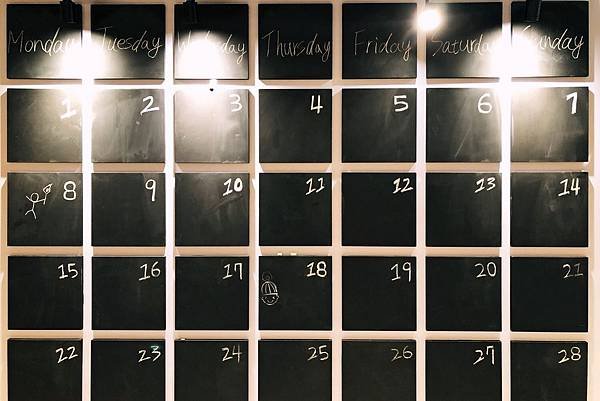 Monday Tuesday Wednesday Thursday Friday Saturday Sunday
1 2 3 4 5 6 7
8 9 10 11 12 13 14
15 16 17 18 19 20 21
22 23 24 25 26 27 28